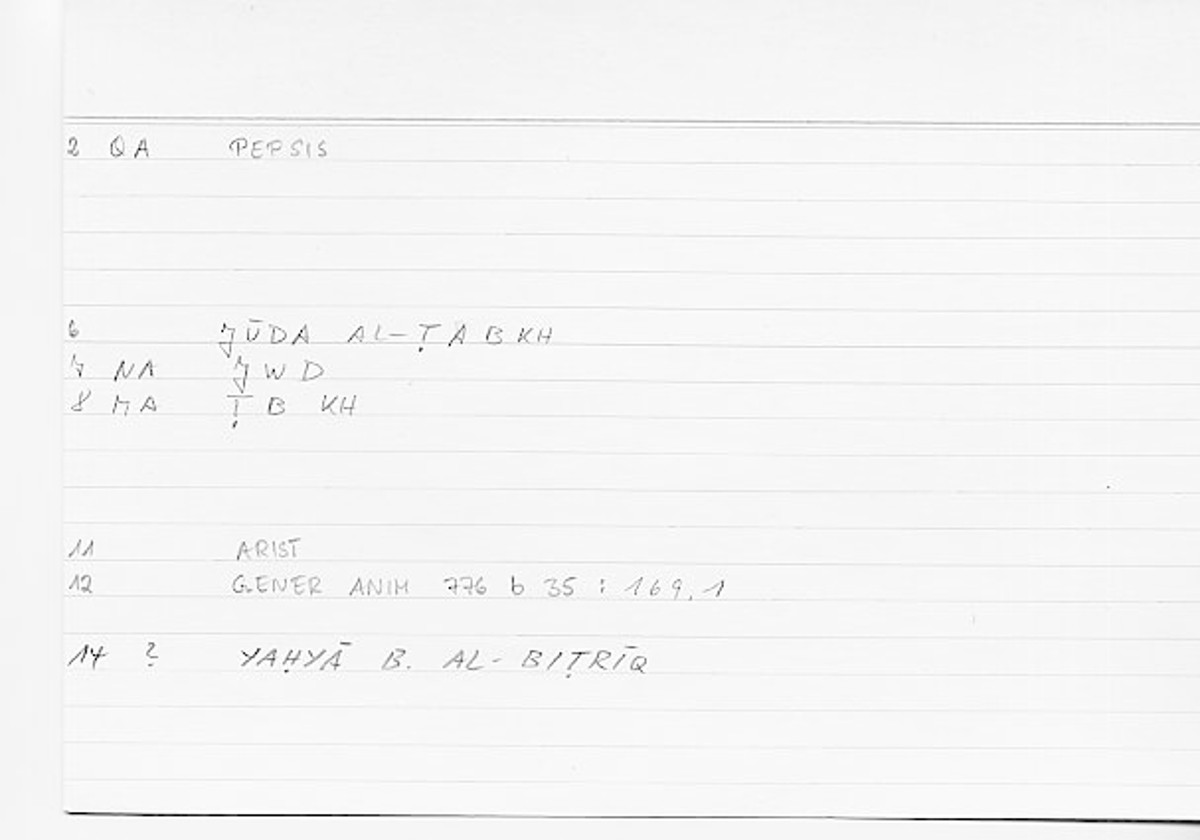 2 QA PEPSIS
6 JŪDA AL-ṬABKH
7 NA JWD
8 MA ṬB KH
11 ARIST
12 GENER ANIM 776 b 35 : 169,1
14 ? YAḤYĀ B. AL-BIṬRĪQ